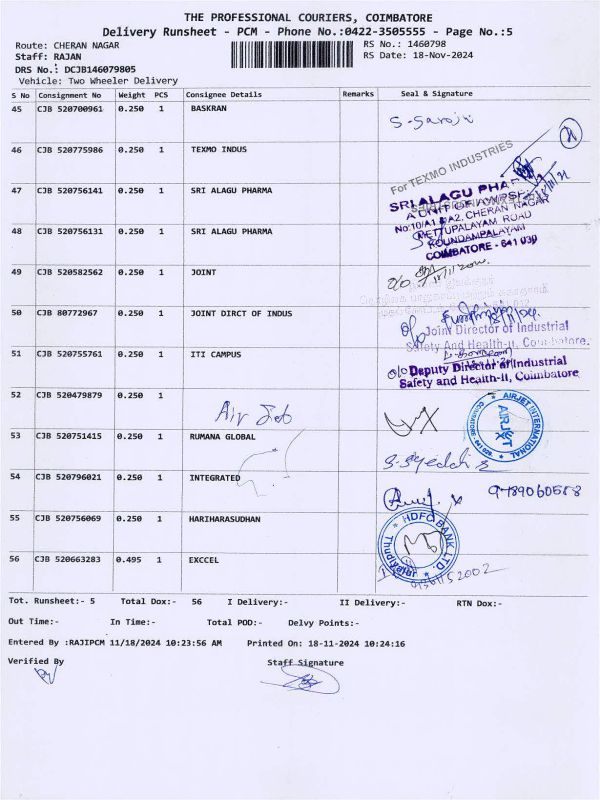 THE PROFESSIONAL COURIERS, COIMBATORE
Delivery Runsheet - PCM - Phone No.:0422-3505555 - Page No.:5
Route: CHERAN NAGAR RS No.: 1460798
Staff: RAJAN RS Date: 18-Nov-2024
DRS No.: DCJB146079805
Vehicle: Two Wheeler Delivery
S No Consignment No Weight PCS Consignee Details Remarks Seal & Signature
45 CJB 520700961 0.250 1 BASKRAN
46 CJB 520775986 0.250 1 TEXMO INDUS
For TEXMO INDUSTRIES
47 CJB 520756141 0.250 1 SRI ALAGU PHARMA
SRI ALAGU PHAR
No:10/A1 &A2, CHERAN NAGAR
METTUPALAYAM ROAD
48 CJB 520756131 0.250 1 SRI ALAGU PHARMA
KOUNDAMPALAYAM
COIMBATORE - 641 030
49 CJB 520582562 0.250 1 JOINT
50 CJB 80772967 0.250 1 JOINT DIRCT OF INDUS
Joint Director of Industrial
Safety And Health-II, Coimbatore.
51 CJB 520755761 0.250 1 ITI CAMPUS
Deputy Director of Industrial
Safety and Health-II, Coimbatore
52 CJB 520479879 0.250 1
Air Jet
AIRJET INTERNATIONAL
AIRJET
53 CJB 520751415 0.250 1 RUMANA GLOBAL
54 CJB 520796021 0.250 1 INTEGRATED
55 CJB 520756069 0.250 1 HARIHARASUDHAN
HDFC BANK LTD.
Thudiyalur
56 CJB 520663283 0.495 1 EXCCEL
Tot. Runsheet:- 5 Total Dox:- 56 I Delivery:- II Delivery:- RTN Dox:-
Out Time:- In Time:- Total POD:- Delvy Points:-
Entered By :RAJIPCM 11/18/2024 10:23:56 AM Printed On: 18-11-2024 10:24:16
Verified By Staff Signature